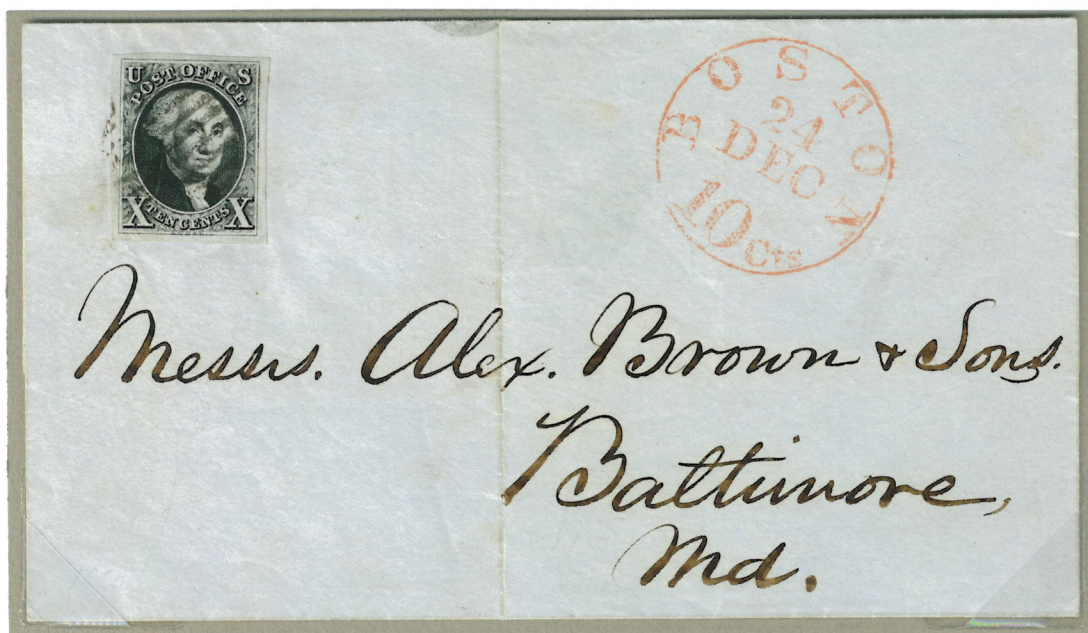 U S
POST OFFICE
X TEN CENTS X
BOSTON
24
DEC
10 Cts
Messrs. Alex. Brown & Sons.
Baltimore,
Md.